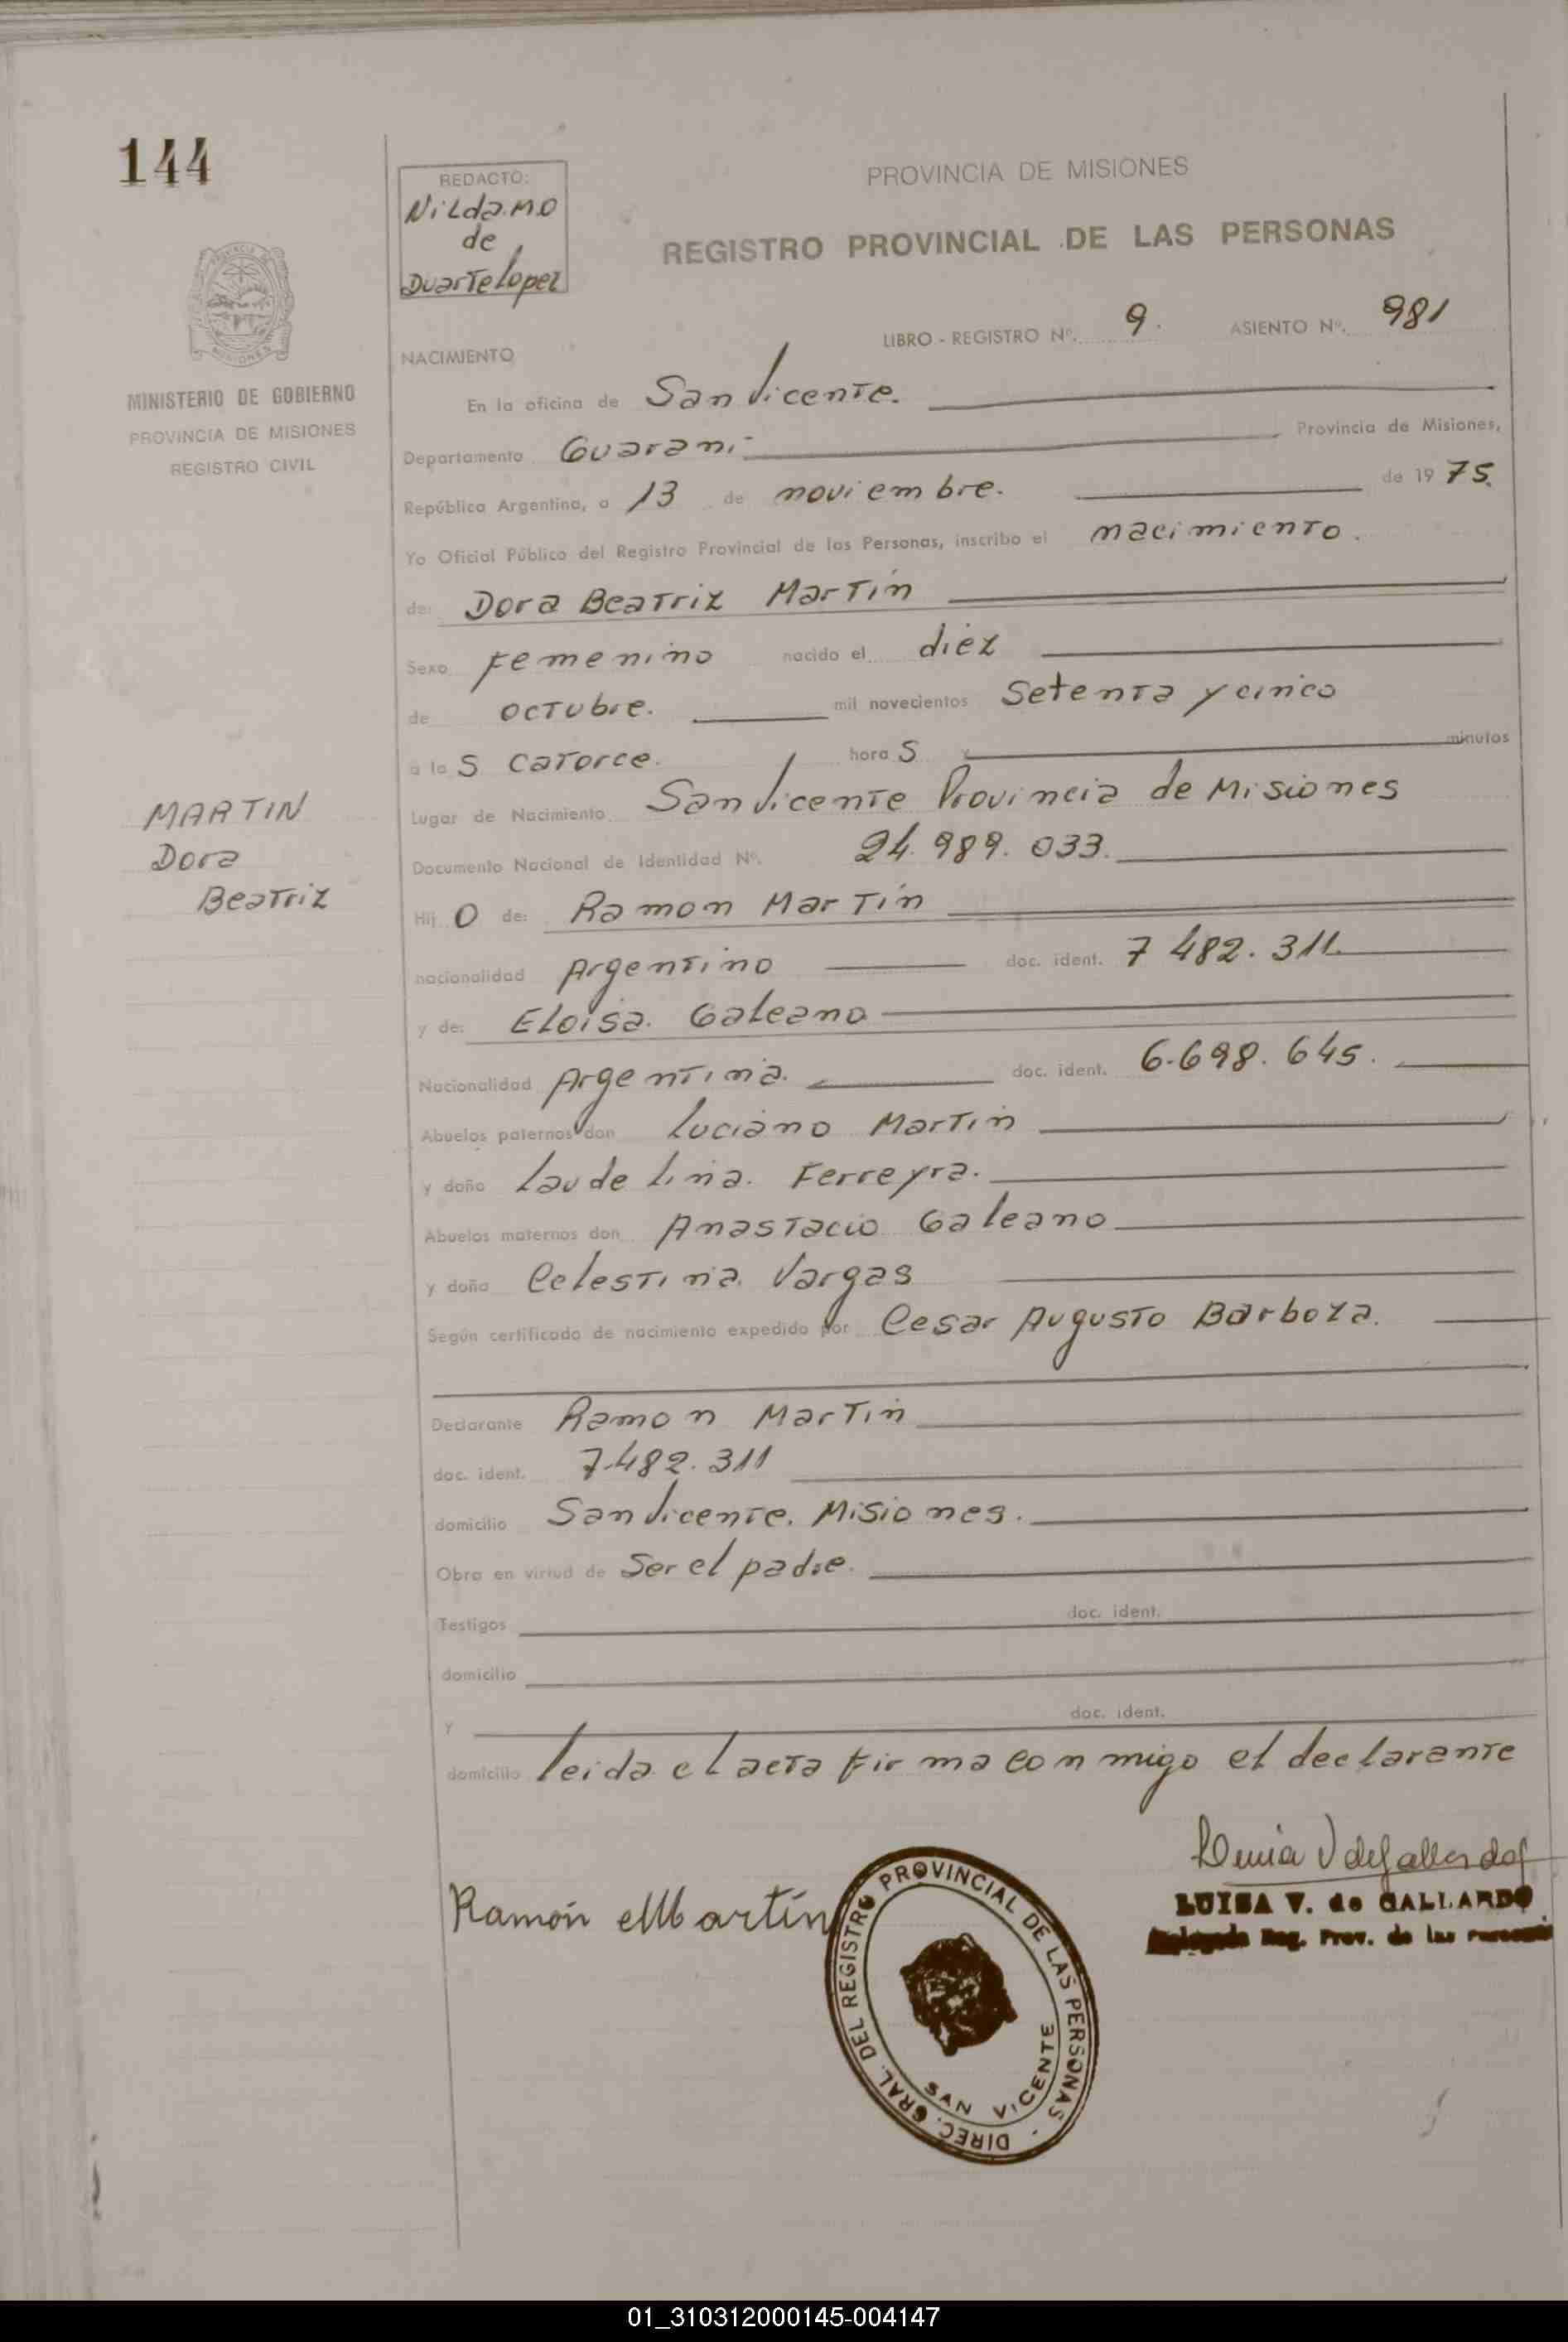 144
REDACTO:
Nilda.M.D
de
Duarte Lopez
PROVINCIA DE MISIONES
REGISTRO PROVINCIAL DE LAS PERSONAS
LIBRO - REGISTRO Nº. 9. ASIENTO Nº. 981
MINISTERIO DE GOBIERNO
PROVINCIA DE MISIONES
REGISTRO CIVIL
NACIMIENTO
En la oficina de San Vicente.
Departamento Guarani Provincia de Misiones,
República Argentina, a 13 de noviembre. de 1975.
Yo Oficial Público del Registro Provincial de las Personas, inscribo el nacimiento.
de: Dora Beatriz Martín
Sexo femenino nacido el diez
de octubre. mil novecientos setenta y cinco
a las catorce. horas y minutos
MARTIN
Dora
Beatriz
Lugar de Nacimiento San Vicente Provincia de Misiones
Documento Nacional de Identidad Nº. 24.989.033.
Hijo de: Ramon Martín
nacionalidad Argentino doc. ident. 7 482.311.
y de: Eloisa. Galeano
Nacionalidad Argentina. doc. ident. 6.698.645.
Abuelos paternos don Luciano Martin
y doña Laudelina. Ferreyra.
Abuelos maternos don Anastacio Galeano
y doña Celestina. Vargas
Según certificado de nacimiento expedido por Cesar Augusto Barboza.
Declarante Ramon Martin
doc. ident. 7.482.311
domicilio San Vicente. Misiones.
Obra en virtud de ser el padre.
Testigos doc. ident.
domicilio
y doc. ident.
domicilio leida el acta firma conmigo el declarante
Ramón Martín
DIREC. GRAL. DEL REGISTRO PROVINCIAL DE LAS PERSONAS
SAN VICENTE
LUISA V. de GALLARDO
Reg. Prov. de las
01_310312000145-004147